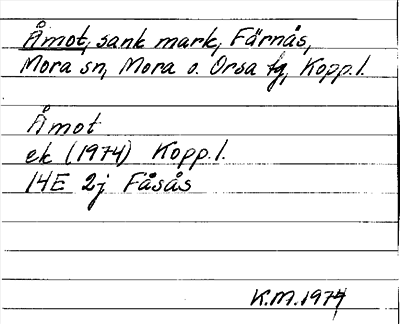 Åmot, sank mark, Färnås,
Mora sn, Mora o. Orsa tg, Kopp. l.
Åmot
ek (1974) Kopp. l.
14E 2j Fåsås
K.M. 1974